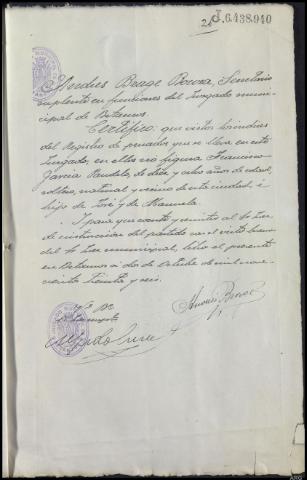 J.6.438.940
Andres Beage Bouza, Secretario
suplente en funciones del Juzgado muni-
cipal de Betanzos
Certifico: que vistos los indices
del Registro de penados que se lleva en este
Juzgado, en ellos no figura Francisco
Garcia de diez y ocho años de edad,
soltero, natural y vecino de esta ciudad, é
hijo de José y de Manuela.
Y para que conste y remitir al Sr Juez
de instruccion del partido con el visto bueno
del Sr Juez municipal, libro el presente
en Betanzos a dos de Octubre de mil nove-
cientos treinta y seis.
Vº Bº